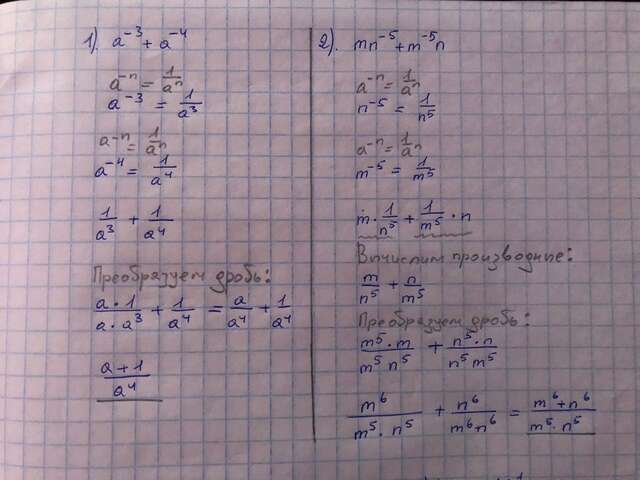 1). a⁻³ + a⁻⁴
a⁻ⁿ = 1/aⁿ
a⁻³ = 1/a³
a⁻ⁿ = 1/aⁿ
a⁻⁴ = 1/a⁴
1/a³ + 1/a⁴
Преобразуем дробь:
a · 1/a · a³ + 1/a⁴ = a/a⁴ + 1/a⁴
a + 1/a⁴
2). mn⁻⁵ + m⁻⁵n
a⁻ⁿ = 1/aⁿ
n⁻⁵ = 1/n⁵
a⁻ⁿ = 1/aⁿ
m⁻⁵ = 1/m⁵
m · 1/n⁵ + 1/m⁵ · n
Вычислим производные:
m/n⁵ + n/m⁵
Преобразуем дробь:
m⁵ · m/m⁵ n⁵ + n⁵ · n/n⁵ m⁵
m⁶/m⁵ · n⁵ + n⁶/m⁶ + n⁶ = m⁶ + n⁶/m⁵ · n⁵